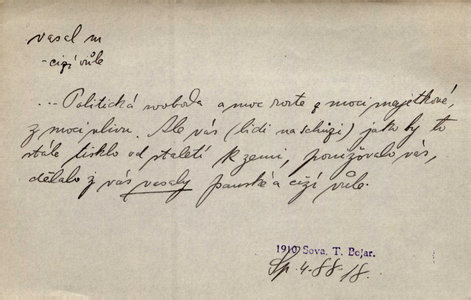 vasal m
- cizí vůle
... Politická svoboda a moc roste z moci majetkové,
z moci vlivu. Ale vás (lidi na schůzi) jako by to
stále tisklo od staletí k zemi, ponižovalo vás,
dělalo z vás vasaly panské a cizí vůle.
1910 Sova, T. Bojar.
Sp. 4-88-18.